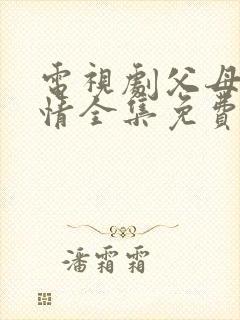 電視劇父母
情全集免費
潘霜霜